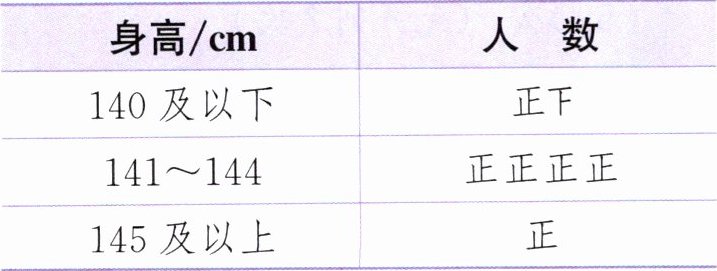 身高/cm 人 数
140 及以下 正下
141～144 正正正正
145 及以上 正